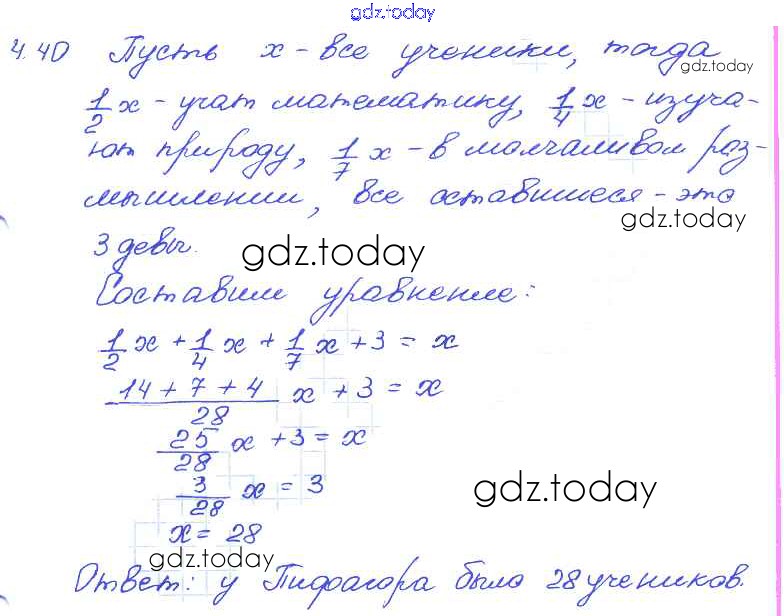 gdz.today
4.40 Пусть x - все ученики, тогда
gdz.today
1/2 x - учат математику, 1/4 x - изуча-
ют природу, 1/7 x - в молчаливом раз-
мышлении, все оставшиеся - это
gdz.today
3 девы.
gdz.today
Составим уравнение:
1/2 x + 1/4 x + 1/7 x + 3 = x
(14 + 7 + 4)/28 x + 3 = x
25/28 x + 3 = x
3/28 x = 3
gdz.today
x = 28
gdz.today
Ответ: у Пифагора было 28 учеников.